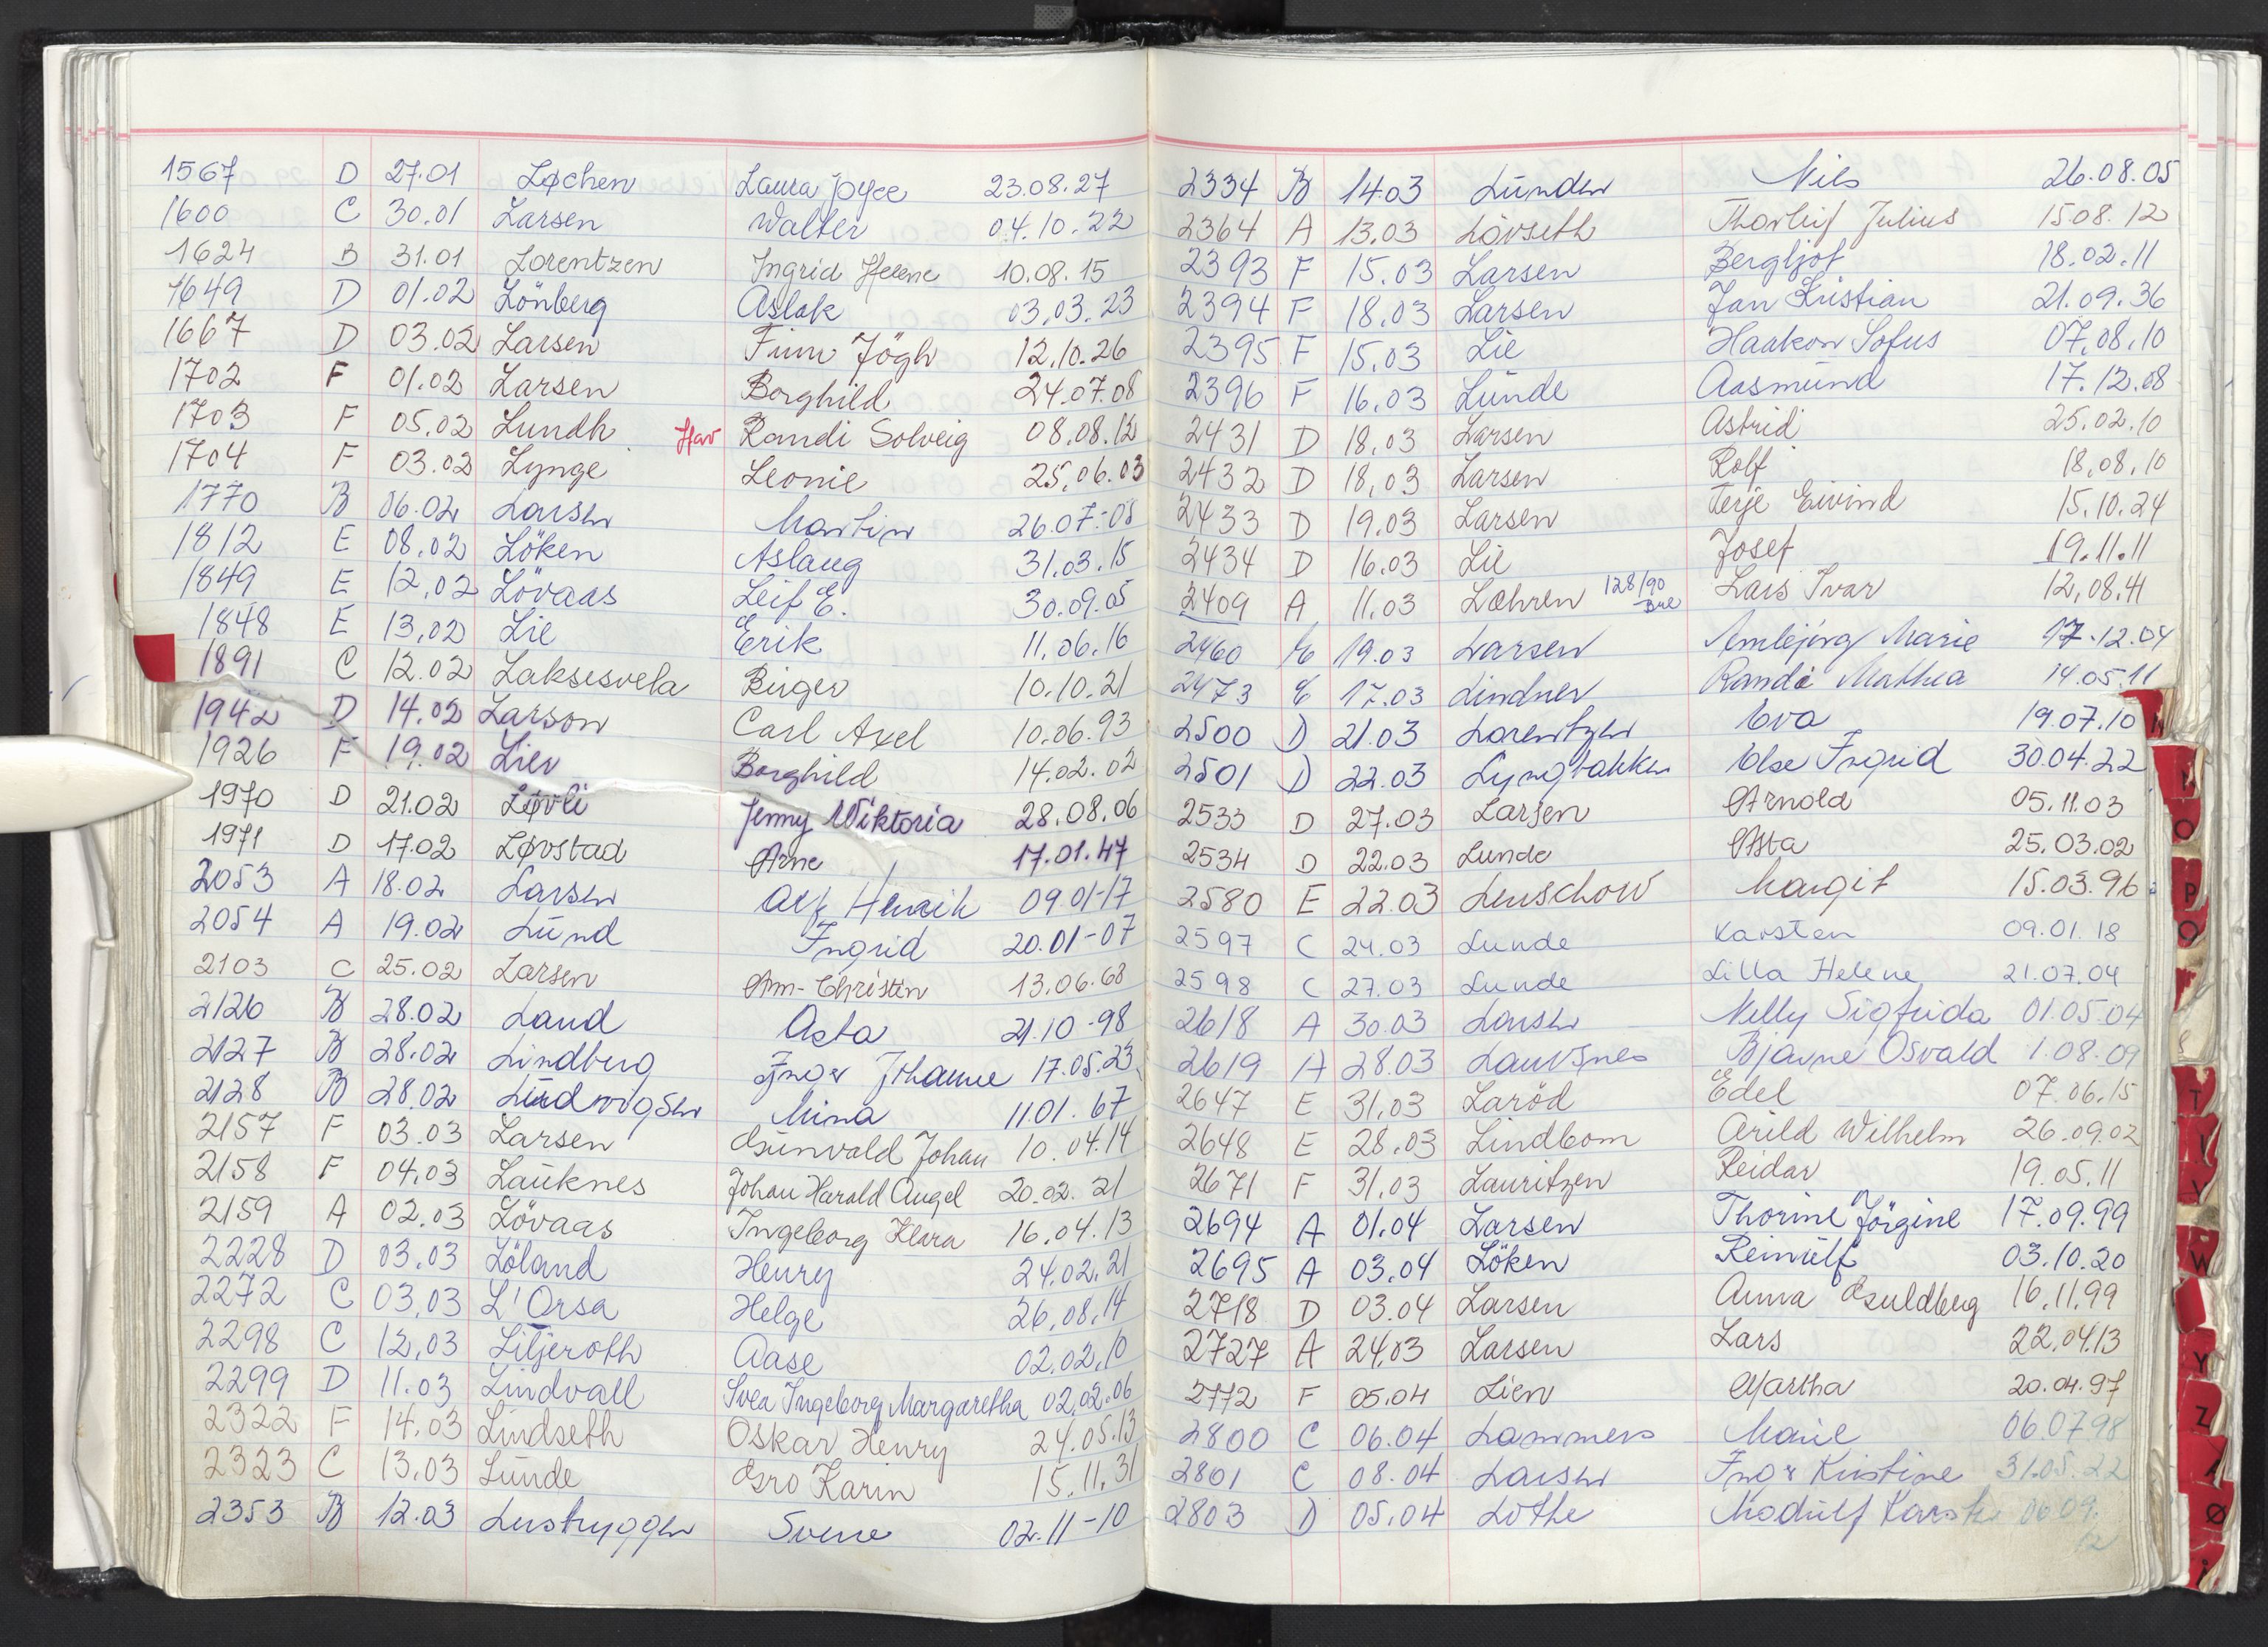 1567 D 27.01 Løchen Laura Joyce 23.08.27
1600 C 30.01 Larsen Walter 04.10.22
1624 B 31.01 Lorentzen Ingrid Helene 10.08.15
1649 D 01.02 Lönberg Aslak 03.03.23
1667 D 03.02 Larsen Finn Högh 12.10.26
1702 F 01.02 Larsen Borghild 24.07.08
1703 F 05.02 Lundh Hav Randi Solveig 08.08.12
1704 F 03.02 Lynge Leonie 25.06.03
1770 B 06.02 Larsen Martin 26.07-08
1812 E 08.02 Löken Aslaug 31.03.15
1849 E 12.02 Lövaas Leif E. 30.09.05
1848 E 13.02 Lie Erik 11.06.16
1891 C 12.02 Laksesvela Birger 10.10.21
1942 D 14.02 Larson Carl Axel 10.06.93
1926 F 19.02 Lien Borghild 14.02.02
1970 D 21.02 Løvli Jenny Wiktoria 28.08.06
1971 D 17.02 Løvstad Arne 17.01.47
2053 A 18.02 Larsen Alf Henrik 09.01-17
2054 A 19.02 Lund Ingrid 20.01-07
2103 C 25.02 Larsen Ann-Christin 13.06.68
2126 B 28.02 Land Asta 21.10-98
2127 B 28.02 Lindberg Inger Johanne 17.05.23
2128 B 28.02 Ludvigsen Mina 11.01.67
2157 F 03.03 Larsen Gunvald Johan 10.04.14
2158 F 04.03 Lauknes Johan Harald Angel 20.02.21
2159 A 02.03 Lövaas Ingeborg Klara 16.04.13
2228 D 03.03 Löland Henry 24.02.21
2272 C 03.03 L'Orsa Helge 26.08.14
2298 C 12.03 Liljeroth Aase 02.02.10
2299 D 11.03 Lindvall Svea Ingeborg Margaretha 02.02.06
2322 F 14.03 Lindseth Oskar Henry 24.05.13
2323 C 13.03 Lunde Gro Karin 15.11.31
2353 B 12.03 Lenstryggen Svene 02.11-10
2334 B 14.03 Lunden Nils 26.08.05
2364 A 13.03 Lövseth Thorleif Julius 15 08.12
2393 F 15.03 Larsen Bergljot 18.02.11
2394 F 18.03 Larsen Jan Kristian 21.09.36
2395 F 15.03 Lie Haakon Sofus 07.08.10
2396 F 16.03 Lunde Aasmund 17.12.08
2431 D 18.03 Larsen Astrid 25.02.10
2432 D 18.03 Larsen Rolf 18.08.10
2433 D 19.03 Larsen Terje Eivind 15.10.24
2434 D 16.03 Lie Josef 19.11.11
2409 A 11.03 Loehren 128/90 Lars Ivar 12.08.41
2460 E 19.03 Larsen Marie 17.12.04
2473 E 17.03 Lindner Randi Mathea 14.05.11
2500 D 21.03 Lorentzen Eva 19.07.10
2501 D 22.03 Lyngbakken Else Ingrid 30.04.22
2533 D 27.03 Larsen Arnold 05.11.03
2534 D 22.03 Lunde Asta 25.03.02
2580 E 22.03 Lenschow Margit 15.03.96
2597 C 24.03 Lunde Karsten 09.01.18
2598 C 27.03 Lunde Lilla Helene 21.07.04
2618 A 30.03 Larsen Nelly Sigfrida 01.05.04
2619 A 28.03 Lauvsnes Bjarne Osvald 1.08.09
2647 E 31.03 Laröd Edel 07.06.15
2648 E 28.03 Lindbom Arild Wilhelm 26.09.02
2671 F 31.03 Lauritzen Reidar 19.05.11
2694 A 01.04 Larsen Thorine Jörgine 17.09.99
2695 A 03.04 Löken Reinulf 03.10.20
2718 D 03.04 Larsen Anna Guldberg 16.11.99
2727 A 24.03 Larsen Lars 22.04.13
2772 F 05.04 Lien Martha 20.04.97
2800 C 06.04 Lammers Marie 06.07.98
2801 C 08.04 Larsen Inger Kristine 31.05.22
2803 D 05.04 Lothe Modulf Karsten 06.09.
12
O
P
Q
T
V
W
Y
Z
Ø